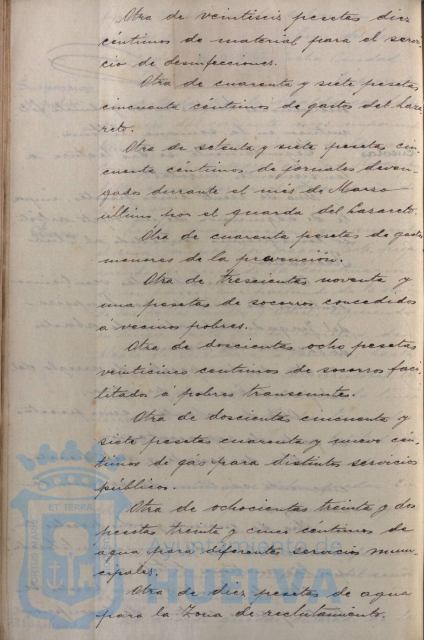 Otra de veintiseis pesetas diez
céntimos de material para el servi-
cio de desinfecciones.
Otra de cuarenta y siete pesetas
cincuenta céntimos de gastos del Laza-
reto.
Otra de setenta y siete pesetas cin-
cuenta céntimos de jornales deven-
gados durante el mes de Marzo
último por el guarda del Lazareto.
Otra de cuarenta pesetas de gastos
menores de la prevención.
Otra de trescientas noventa y
una pesetas de socorros concedidos
á vecinos pobres.
Otra de doscientas ocho pesetas
veinticinco centimos de socorros faci-
litados á pobres transeuntes.
Otra de doscientas cincuenta y
siete pesetas cuarenta y nueve cén-
timos de gas para distintos servicios
públicos.
Otra de ochocientas treinta y dos
pesetas treinta y cinco centimos de
agua para diferentes servicios muni-
cipales.
Otra de diez pesetas de agua
para la Zona de reclutamiento.
ET TERRÆ
Ayuntamiento de
HUELVA